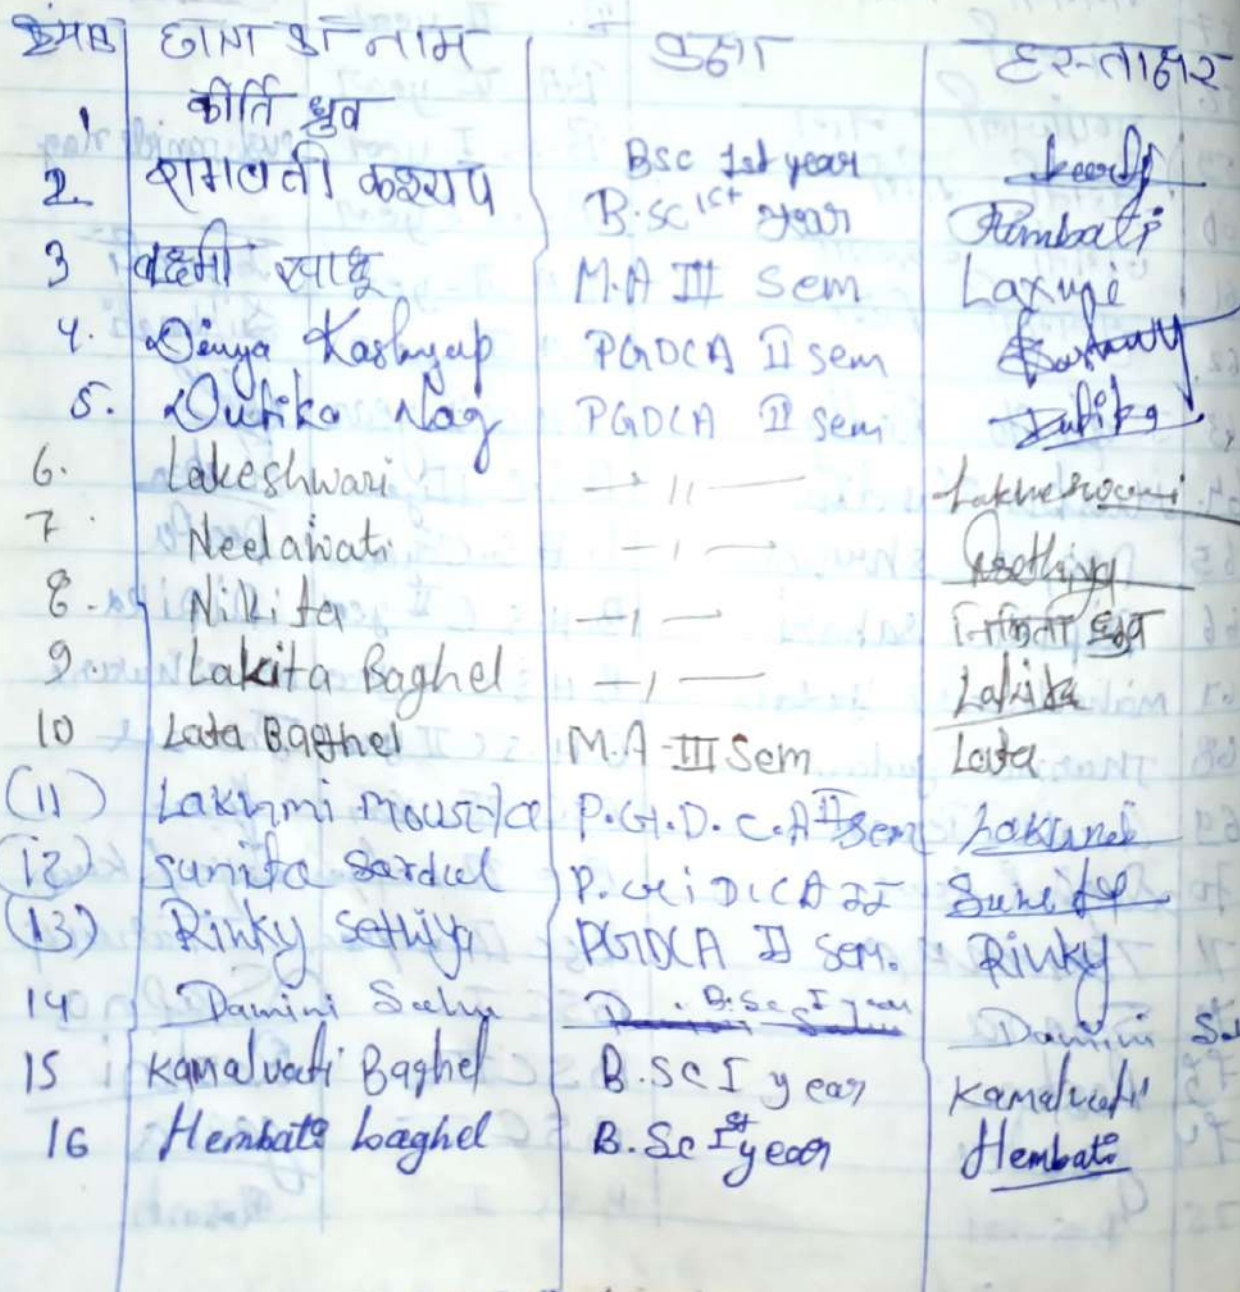 क्रमांक छात्रा का नाम कक्षा हस्ताक्षर
1 कीर्ति ध्रुव Bsc 1st year
2. रामवती कश्यप B.sc 1st year Rambati
3 लक्ष्मी साहू M.A III Sem Laxmi
4. Divya Kashyap PGDCA II sem
5. Dutika Nag PGDCA II sem Dutika
6. Lakeshwari — 11 —
7. Neelawati — 1 —
8. Nikita — 1 —
9. Lakita Baghel — 1 — Lakita
10 Lata Baghel M.A-III Sem Lata
(11) Lakhmi mourya P.G.D.C.A II sem
(12) Sunita Sardul P.G.D.C.A II Sunita
(13) Rinky Sethiya PGDCA II Sem. Rinky
14 Damini Sahu B.Sc I year Damini
15 Kamalvati Baghel B.Sc I year Kamalvati
16 Hembati baghel B.Sc Ist year Hembati